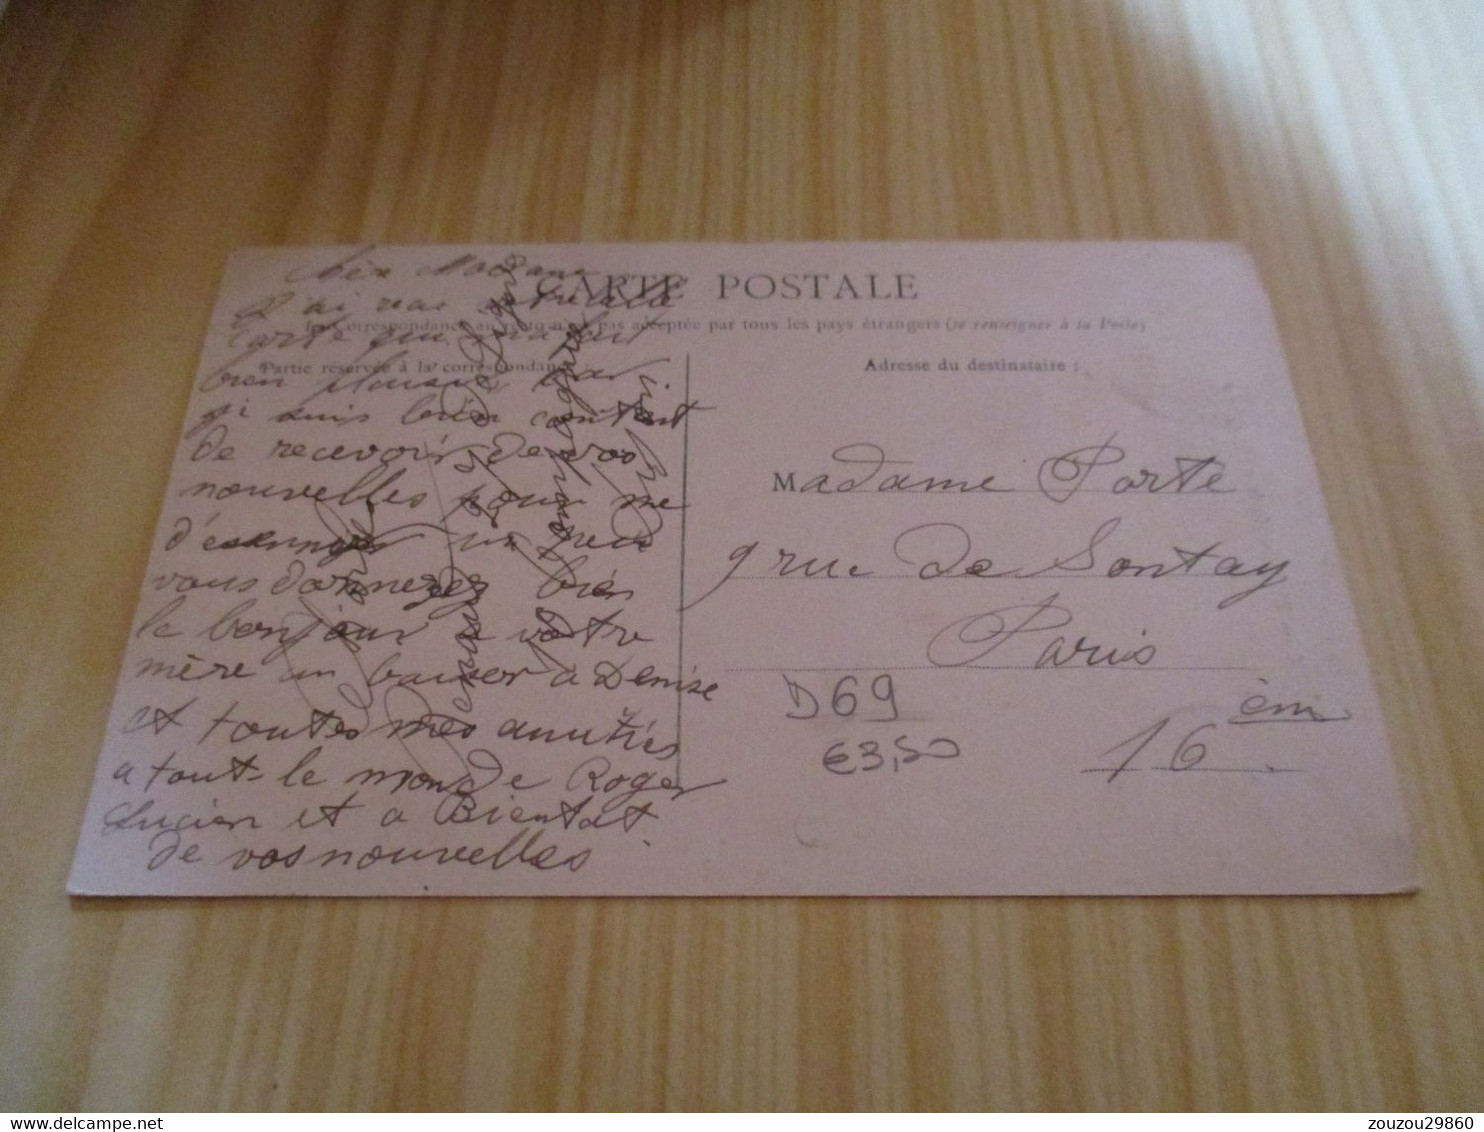 Chère Madame
J'ai reçu votre belle
Carte qui m'a fait
bien plaisir car
gi suis bien contant
de recevoir de vos
nouvelles pour me
un peu
vous donnerez bien
le bonjour a votre
mère un baiser a Denise
et toutes mes amitiés
a tout le monde Roger
Lucien et a Bientot
de vos nouvelles
CARTE POSTALE
La Correspondance au recto n'est pas acceptée par tous les pays étrangers (se renseigner à la Poste)
Partie réservée à la correspondance
Adresse du destinataire :
Madame Porte
9 rue de Sontay
Paris
16 èm
D69
€3,50
zouzou29860